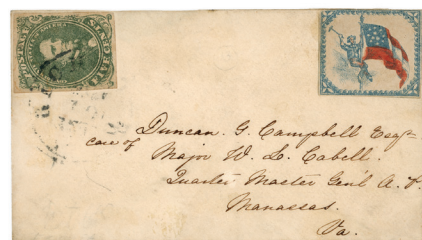 Duncan. G. Campbell Esqr
care of
Major W. L. Cabell.
Quarter Master Genl A. P.
Manassas.
Va.